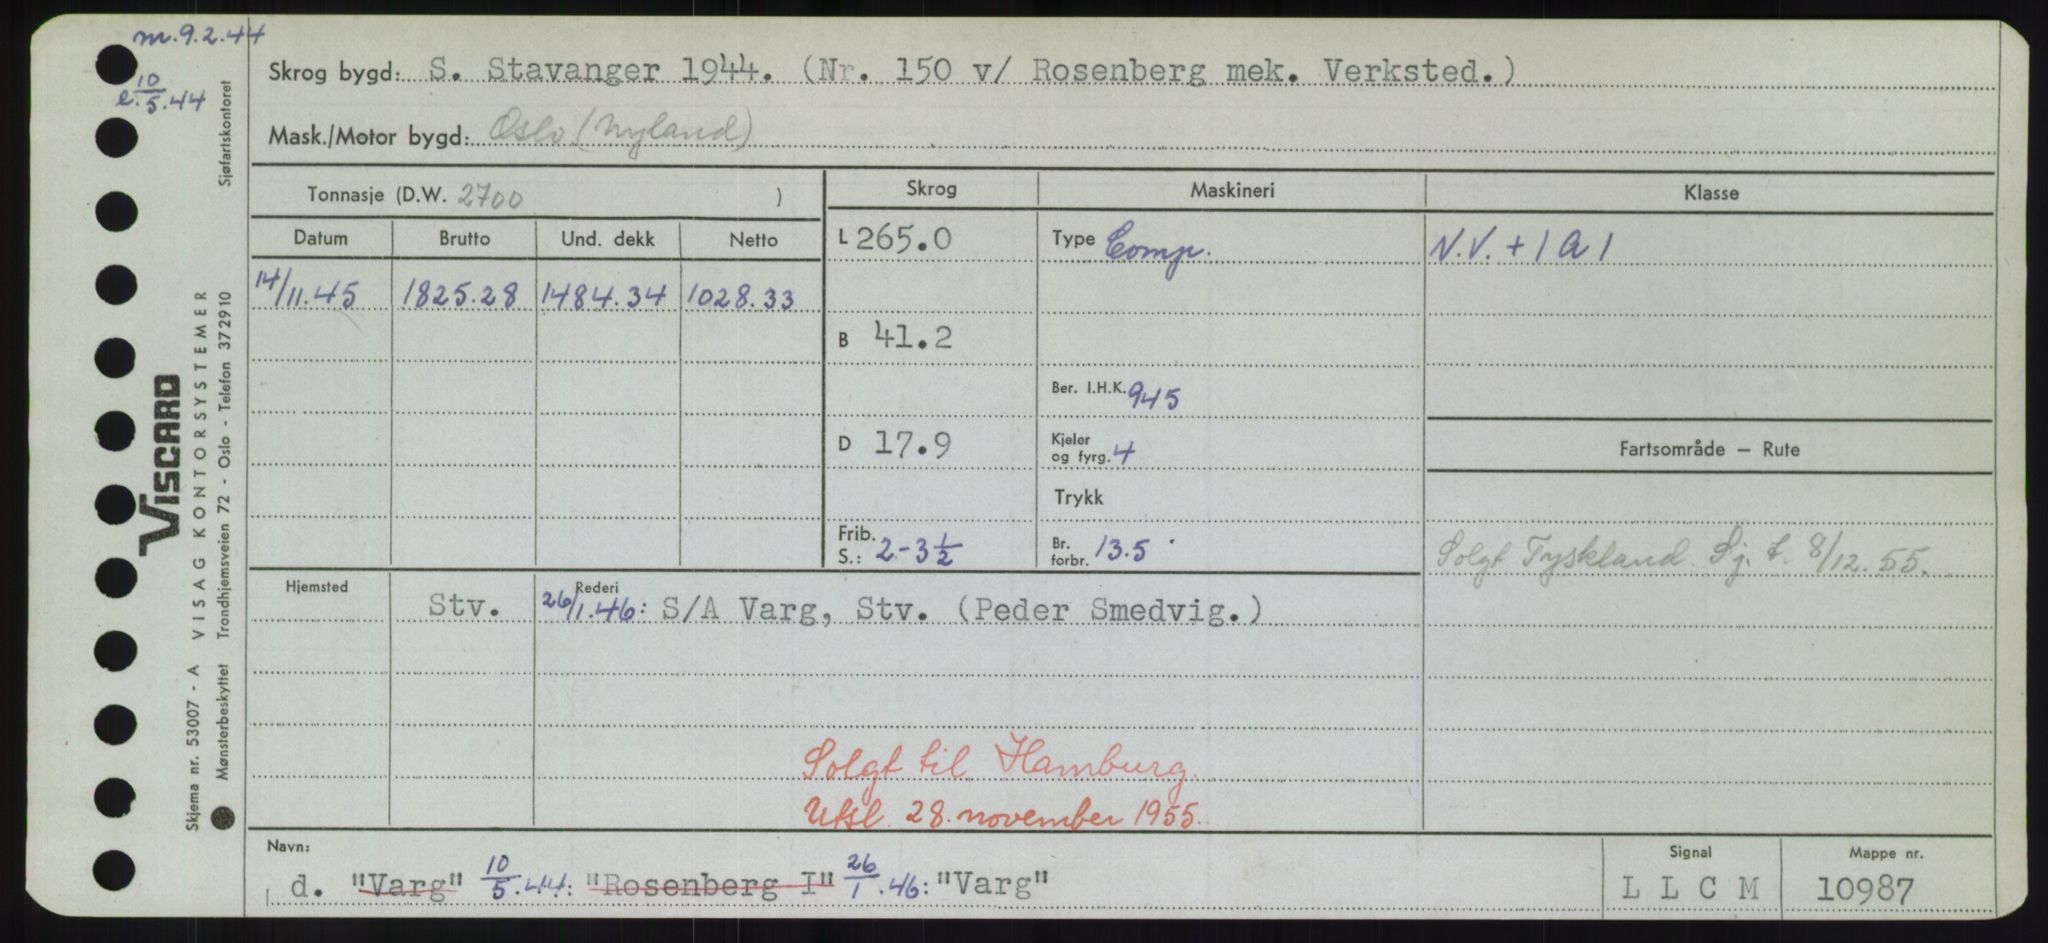 m. 9.2.44
e. 10/5.44
Skrog bygd: S. Stavanger 1944. (Nr. 150 v/ Rosenberg mek. Verksted.)
Mask./Motor bygd: Oslo (Nyland)
Tonnasje (D.W. 2700 )
Skrog
Maskineri
Klasse
Datum Brutto Und. dekk Netto
14/11.45 1825.28 1484.34 1028.33
L 265.0
B 41.2
D 17.9
Frib. S.: 2-3½
Type Comp.
Ber. I.H.K. 945
Kjeler og fyrg. 4
Trykk
Br. forbr. 13.5
N.V. + 1 A 1
Fartsområde – Rute
Solgt Tyskland. Sj. t. 8/12.55.
Hjemsted
Rederi
Stv. 26/1.46: S/A Varg, Stv. (Peder Smedvig.)
Solgt til Hamburg.
Utsl. 28. november 1955.
Navn:
d. "Varg" 10/5.44: "Rosenberg I" 26/1.46: "Varg"
Signal
L L C M
Mappe nr.
10987
VISCARD
VISAG KONTORSYSTEMER
Skjema nr. 53007 - A
Sjøfartskontoret
Mønsterbeskyttet Trondhjemsveien 72 - Oslo - Telefon 372910